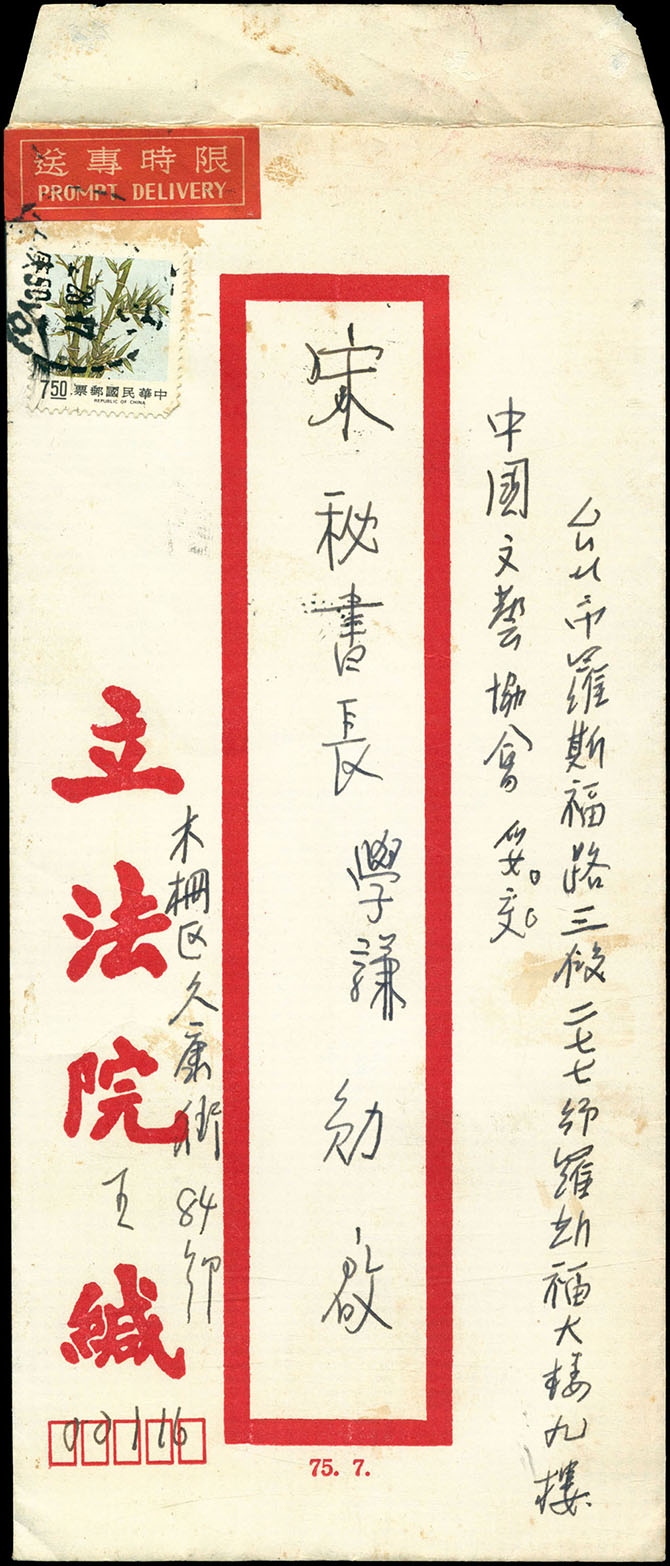 限時專送
PROMPT DELIVERY
中華民國郵票
REPUBLIC OF CHINA
7.50
台北市羅斯福路三段二七七號羅斯福大樓九樓
中国文藝協會 交
宋秘書長 學謙 勛啟
木柵区久康街84號
立法院 王 緘
00116
75. 7.